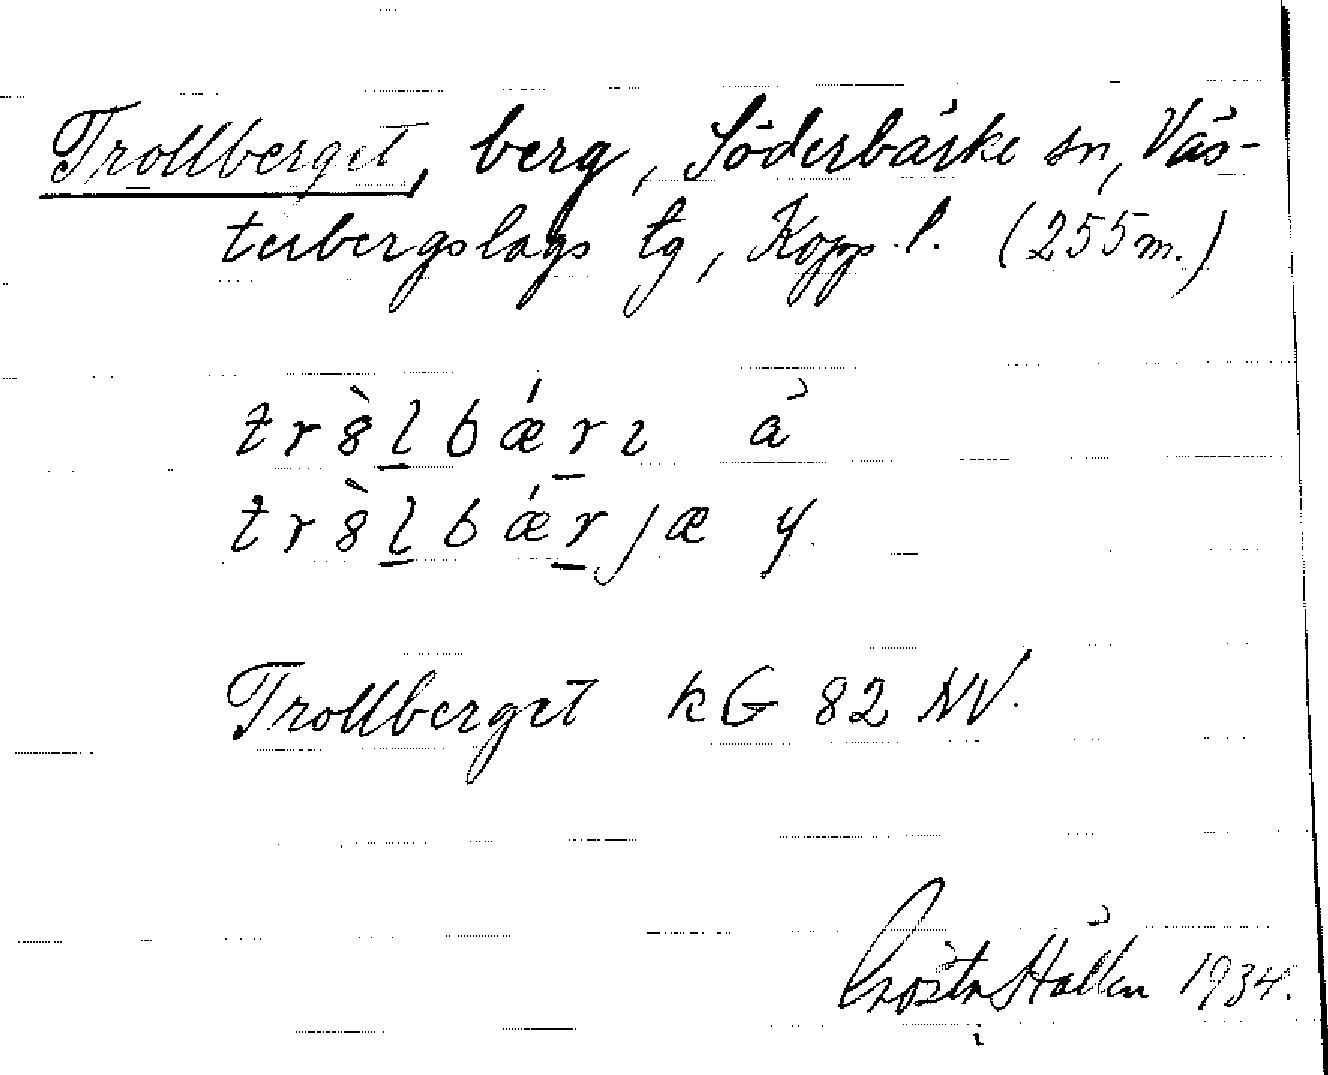 Trollberget, berg, Söderbärke sn, Väs-
terbergslags tg, Kopp. l. (255m.)
trò̀lbǽrɩ å
trò̀lbǽrjæ y
Trollberget kG 82 NV.
Hållén 1934.